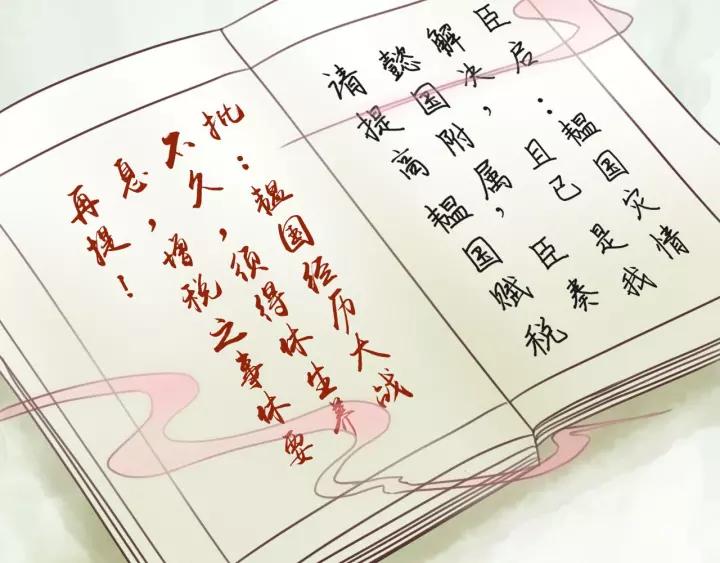 臣启：韫国灾情
解决，且已是我
懿国附属，臣奏
请提高韫国赋税
批：韫国经历大战
不久，须得休生养
息，增税之事休要
再提！